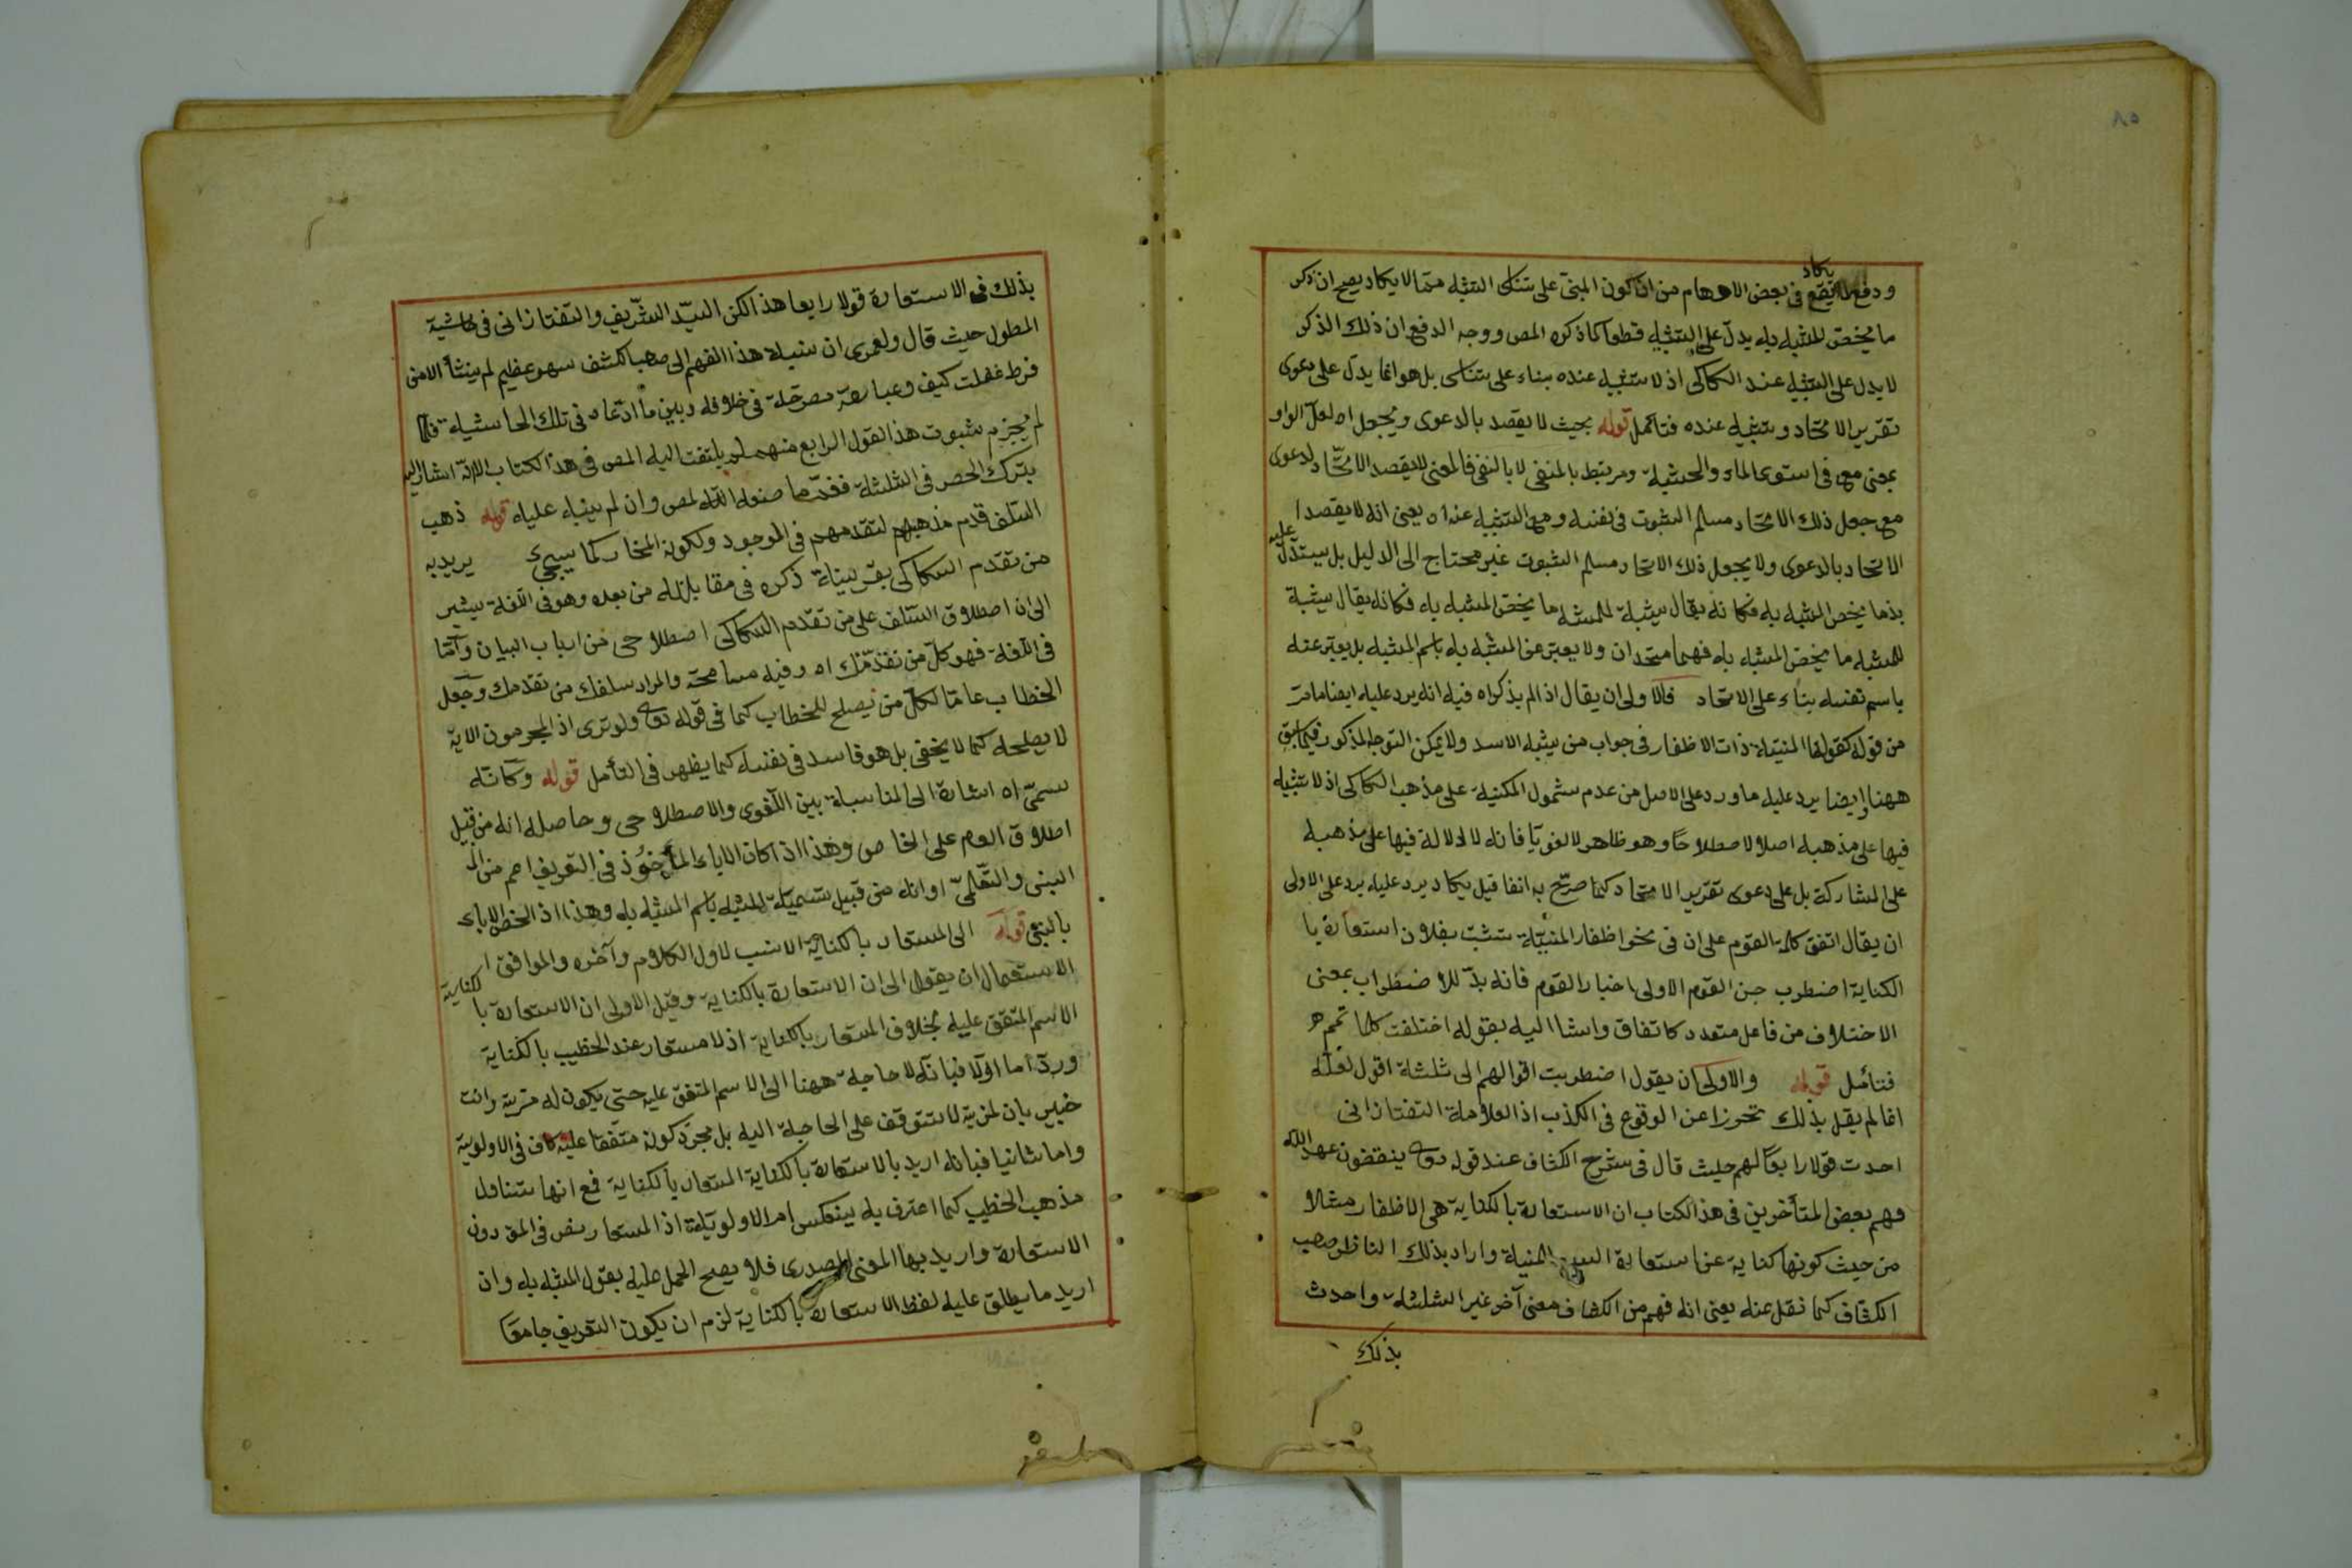 ٨٥
يكاد
ودفع لما يقع في بعض الاوهام من ان كون المبنى على تناسى التشبيه مما لا يكاد يصح ان ذكر
ما يخص المشبه به يدل على التشبيه قطعا كما ذكره المص ووجه الدفع ان ذلك الذكر
لا يدل على التشبيه عند السكاكى اذ لا تشبيه عنده بناء على تناسى بل هو انما يدل على دعوى
تقرير الاتحاد وتشبيه عنده فتأمل قوله بحيث لا يقصد بالدعوى ويجعل اه لعل الواو
بمعنى مع فى استوى الماء والخشبة ومرتبط بالمنفى لا بالنفى فالمعنى لا يقصد الاتحاد لدعوى
مع جعل ذلك الاتحاد مسلم الثبوت فى نفسه ومع التشبيه عنده يعنى انه لا يقصد ا
الاتحاد بالدعوى ولا يجعل ذلك الاتحاد مسلم الثبوت غير محتاج الى الدليل بل يستدل عليه
بذما يخص المشبه به فكانه يقال يشبه للمشبه ما يخص المشبه به فكانه يقال يشبة
للمشبه ما يخص المشبه به فهما متحدان ولا يعبر عن المشبه به باسم المشبه بل يعبر عنه
باسم نفسه بناء على الاتحاد فالاولى ان يقال اذ الم يذكر اه فيه انه يرد عليه ايضا ما مر
من قوله كقولنا المنية ذات الاظفار فى جواب من يشبه الاسد ولا يمكن التوجه المذكور فيما سبق
ههنا وايضا يرد عليه ما ورد على الاصل من عدم شمول المكنية على مذهب السكاكى اذ لا تشبيه
فيها على مذهبه اصلا لا اصطلاحا وهو ظاهر لا لغويا فانه لا دلالة فيها على مذهبه
على المشاركة بل على دعوى تقرير الاتحاد كما صرح به انفا قيل يكاد يرد عليه يرد على الاولى
ان يقال اتفق كلمة القوم على ان فى نحو اظفار المنية نشبت بفلان استعارة با
الكناية اضطرب جن القوم الاولى اختيار القوم فانه بد للاضطراب بمعنى
الاختلاف من فاعل متعدد كاتفاق واشا اليه بقوله اختلفت كلماتهم هر
فتأمل قوله والاولى ان يقول اضطربت اقوالهم الى ثلثة اقول لعله
انما لم يقل بذلك تحرزا عن الوقوع فى الكذب اذ العلامة التفتازانى
احدث قولا رابعا لهم حيث قال فى شرح الكشاف عند قوله تعه ينقضون عهد الله
فهم بعض المتأخرين فى هذا الكتاب ان الاستعارة بالكناية هى الاظفار مثلا
من حيث كونها كناية عن استعارة السبع للمنية واراد بذلك الناظر صهب
الكشاف كما نقل عنه يعنى انه فهم من الكشاف معنى آخر غير الثلثة واحدث
بذلك
بذلك فى الاستعارة قولا رابعا هذا لكن السيد الشريف والتفتازانى فى حاشية
المطول حيث قال ولعمرى ان نسبة هذا الفهم الى صهب الكشف سهو عظيم لم ينشأ الا من
فرط غفلت كيف وعبارته مصرحة فى خلافه وبين ما ادعاه فى تلك الحاشية فلما
لم يجزم بثبوت هذا القول الرابع منهم لم يلتفت اليه المص فى هذا الكتاب الا انه اشار اليه
بترك الحصر فى الثلثة ففيه ما صنعه الله لمص وان لم ينباء عليه قوله ذهب
السلف قدم مذهبهم لتقدمهم فى الموجود ولكونه المختار كما سيجئ يريد به
من تقدم السكاكى بقرينة ذكره فى مقابلة من بعده وهو فى اللغة يشير
الى ان اطلاق السلف على من تقدم السكاكى اصطلاحى من ارباب البيان وآما
فى اللغة فهو كل من تقدمك اه وفيه مسامحة والمراد سلفك من تقدمك وجعل
الخطاب عاما لكل من يصلح للخطاب كما فى قوله تعه ولو ترى اذ المجرمون الاية
لا يصلحه كما لا يخفى بل هو فاسد فى نفسه كما يظهر فى التأمل قوله وكانه
سمى اه اشارة الى المناسبة بين اللغوى والاصطلاحى وحاصله انه من قبيل
اطلاق العم على الخاص وهذا اذا كان الاباء المأخوذ فى التعريف اعم من ال
البنى والتعلمى او انه من قبيل تسمية المشبه باسم المشبه به وهذا اذ الخص الاباء
بالبنى قوله الى المستعار بالكناية الانسب لاول الكلام وآخره والموافق ا
الاستعمال ان يقول الى ان الاستعارة بالكناية وقيل الاولى ان الاستعارة با لكناية
الاسم المتفق عليه بخلاف المستعار بالكناية اذ لا مستعار عند الخطيب بالكناية
ورد اما اولا فبانه لا حاجة ههنا الى الاسم المتفق عليه حتى يكون له مزية وانت
خبير بان لمزية لا تتوقف على الحاجة اليه بل مجرد كونه متفقا عليه كاف فى الاولوية
واما ثانيا فبانه اريد بالاستعارة بالكناية المستعار بالكناية فمع انها تتناول
مذهب الخطيب كما اعترف به ينعكس امر الاولوية اذ المستعار نص فى المق دون
الاستعارة واريد بها المعنى المصدرى فلا يصح الحمل عليه بقول المشبه به وان
اريد ما يطلق عليه لفظ الاستعارة بالكناية لزم ان يكون التعريف جامعا